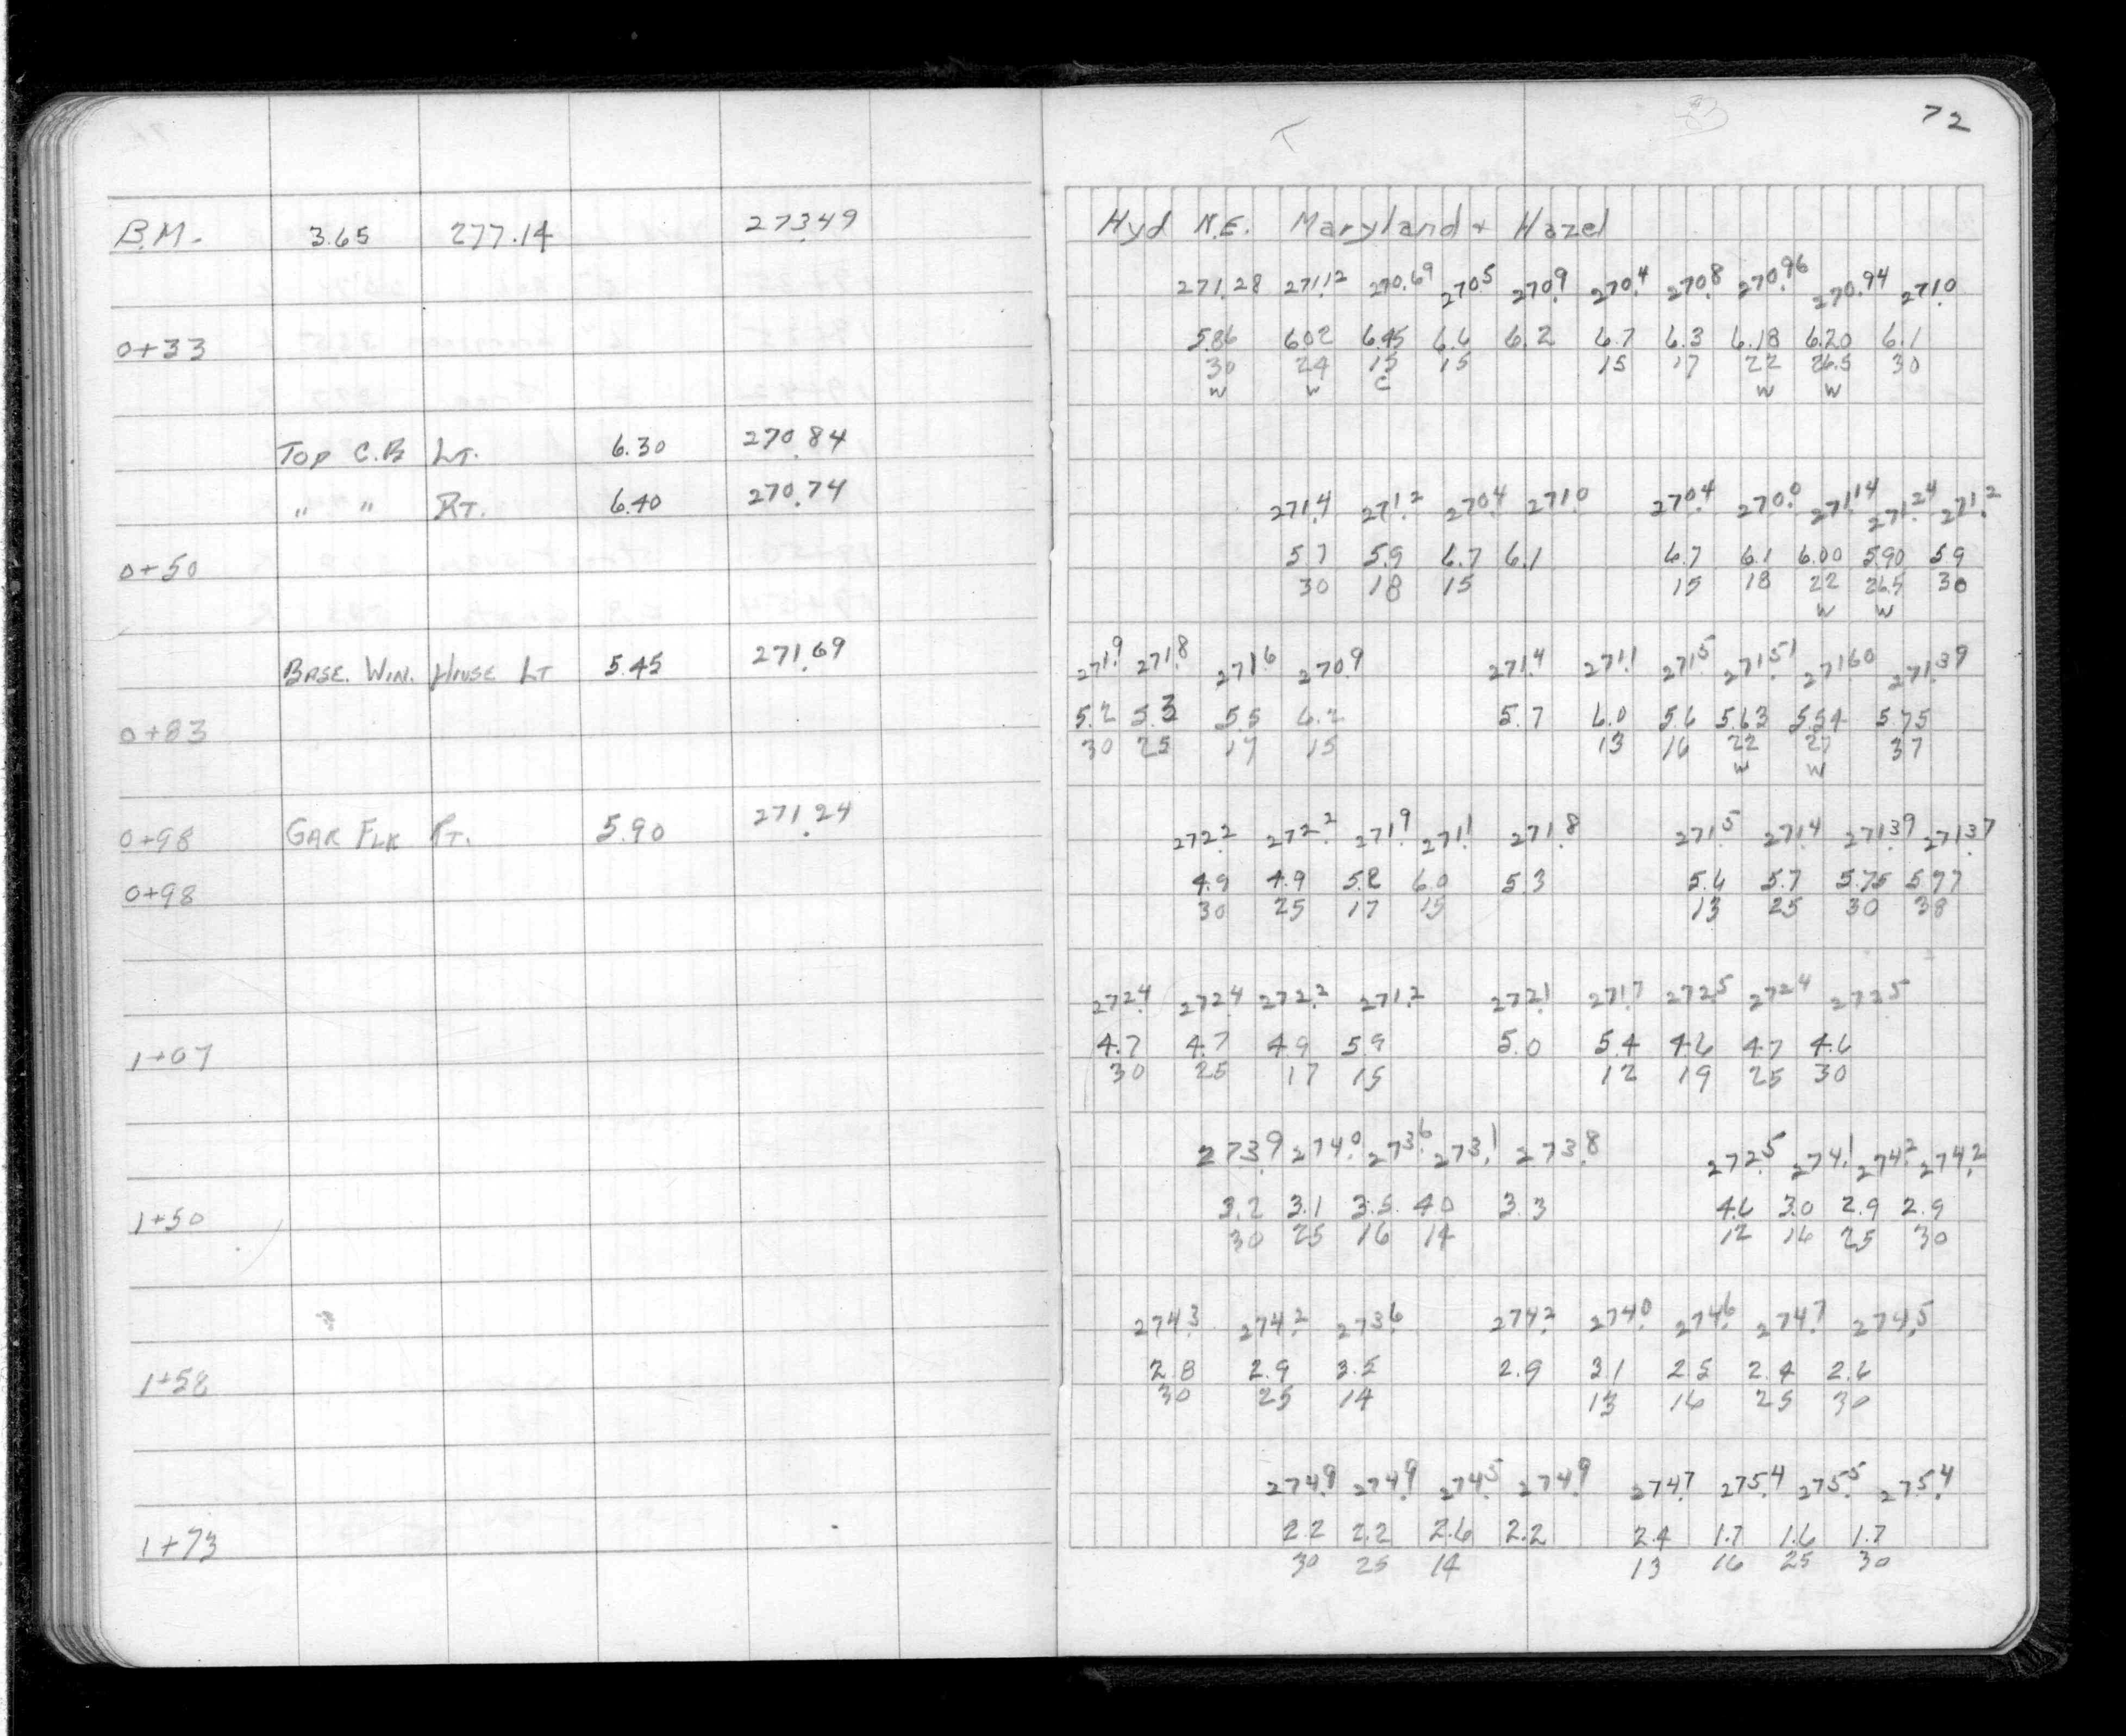 72
B.M. 3.65 277.14 273.49 Hyd N.E. Maryland + Hazel
271.28 271.12 270.69 270.5 270.9 270.4 270.8 270.96 270.94 271.0
0+33 5.86 6.02 6.45 6.6 6.2 6.7 6.3 6.18 6.20 6.1
30 24 15 15 15 17 22 26.5 30
W W C W W
Top C.B LT. 6.30 270.84
" " RT. 6.40 270.74 271.4 271.2 270.4 271.0 270.4 270.0 271.14 271.24 271.2
0+50 5.7 5.9 6.7 6.1 6.7 6.1 6.00 5.90 5.9
30 18 15 15 18 22 26.5 30
W W
BASE. WIN. HOUSE LT 5.45 271.69 271.9 271.8 271.6 270.9 271.4 271.1 271.5 271.51 271.60 271.39
0+83 5.2 5.3 5.5 6.2 5.7 6.0 5.6 5.63 5.54 5.75
30 25 17 15 13 16 22 27 37
W W
0+98 GAR FLR RT. 5.90 271.24 272.2 272.2 271.9 271.1 271.8 271.5 271.4 271.39 271.37
0+98 4.9 4.9 5.2 6.0 5.3 5.6 5.7 5.75 5.77
30 25 17 15 13 25 30 38
272.4 272.4 272.2 271.2 272.1 271.7 272.5 272.4 272.5
1+07 4.7 4.7 4.9 5.9 5.0 5.4 4.6 4.7 4.6
30 25 17 15 12 19 25 30
273.9 274.0 273.6 273.1 273.8 272.5 274.1 274.2 274.2
1+50 3.2 3.1 3.5 4.0 3.3 4.6 3.0 2.9 2.9
30 25 16 14 12 16 25 30
274.3 274.2 273.6 274.2 274.0 274.6 274.7 274.5
1+58 2.8 2.9 3.5 2.9 3.1 2.5 2.4 2.6
30 25 14 13 16 25 30
274.9 274.9 274.5 274.9 274.7 275.4 275.5 275.4
1+73 2.2 2.2 2.6 2.2 2.4 1.7 1.6 1.7
30 25 14 13 16 25 30